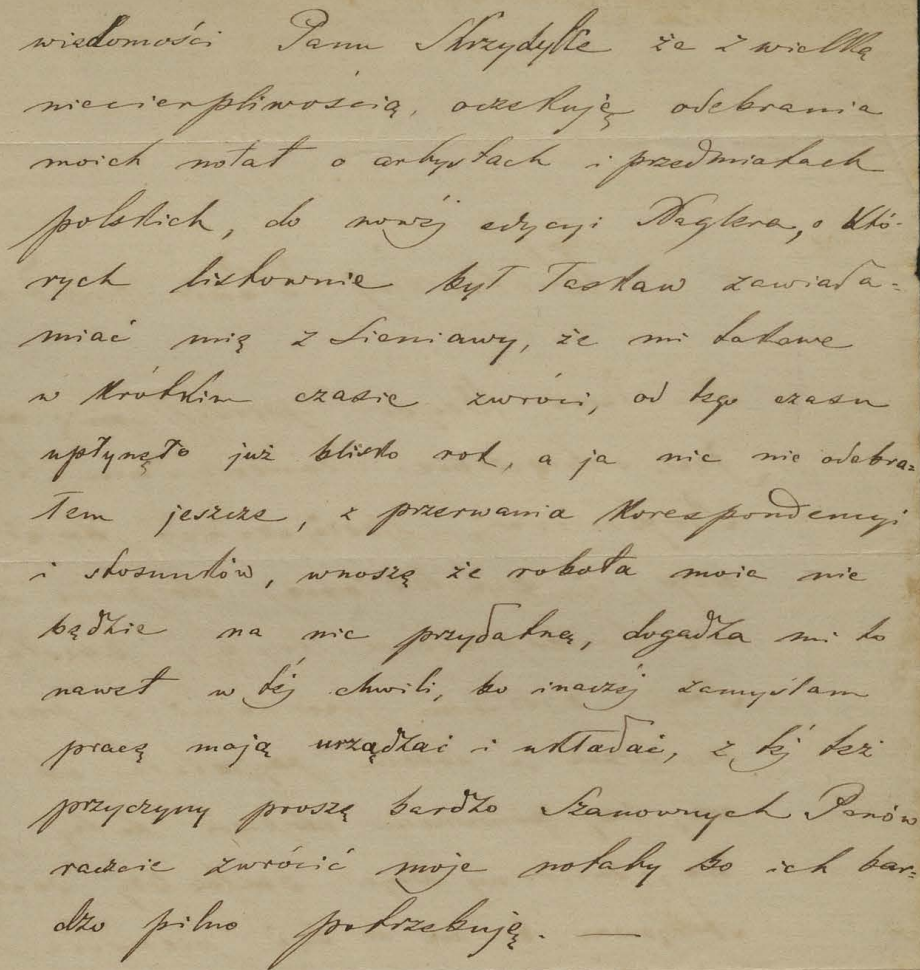 wiadomości Panu Skrzydylke że z wielką
niecierpliwością, oczekuję odebrania
moich notat o artystach i przedmiotach
polskich, do nowéj edycyi Naglera, o któ-
rych listownie był łaskaw zawiada-
miać mię z Sieniawy, że mi takowe
w krótkim czasie zwróci, od tego czasu
upłynęło już blisko rok, a ja nic nie odebra-
łem jeszcze, z przerwania korespondencyi
i stosunków, wnoszę że robota moia nie
będzie na nic przydatną, dogadza mi to
nawet w téj chwili, bo inaczéj zamyślam
pracę moją urządzać i układać, z téj też
przyczyny proszę bardzo Szanownych Panów
raczcie zwrócić moje notaty bo ich bar-
dzo pilno potrzebuję. —